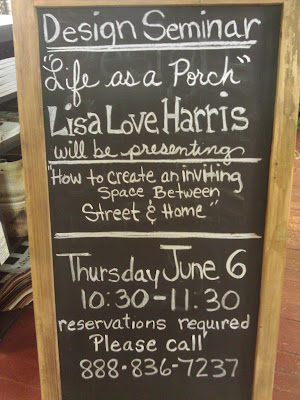 Design Seminar
"Life as a Porch"
Lisa Love Harris
will be presenting
"How to create an inviting
Space Between
Street & Home"
Thursday June 6
10:30-11:30
reservations required
Please call
888-836-7237